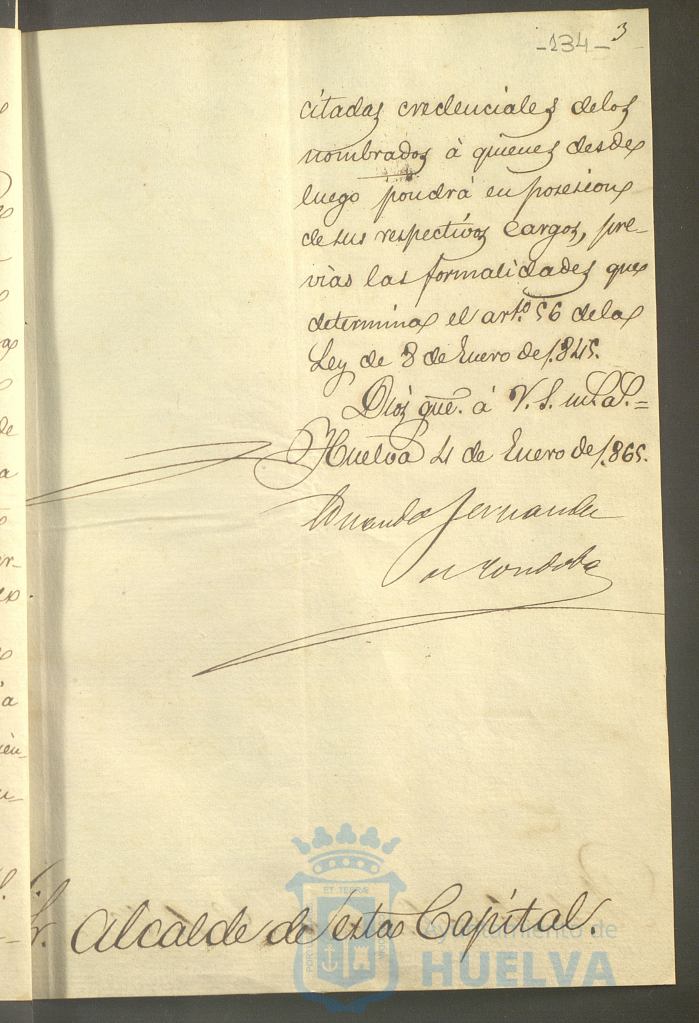 -134- 3
citadas credenciales delos
nombrados à quienes desde
luego pondrá en posesion
de sus respectivos cargos, pre-
vias las formalidades que
determina el artº. 56 dela
Ley de 8 de Enero de 1.845.
Dios gue. á V. S. m.s a.s =
Huelva 4 de Enero de 1.865.
Fernandez
de Cordoba
Sr. Alcalde de esta Capital.
ET TERRÆ
Ayuntamiento de
HUELVA